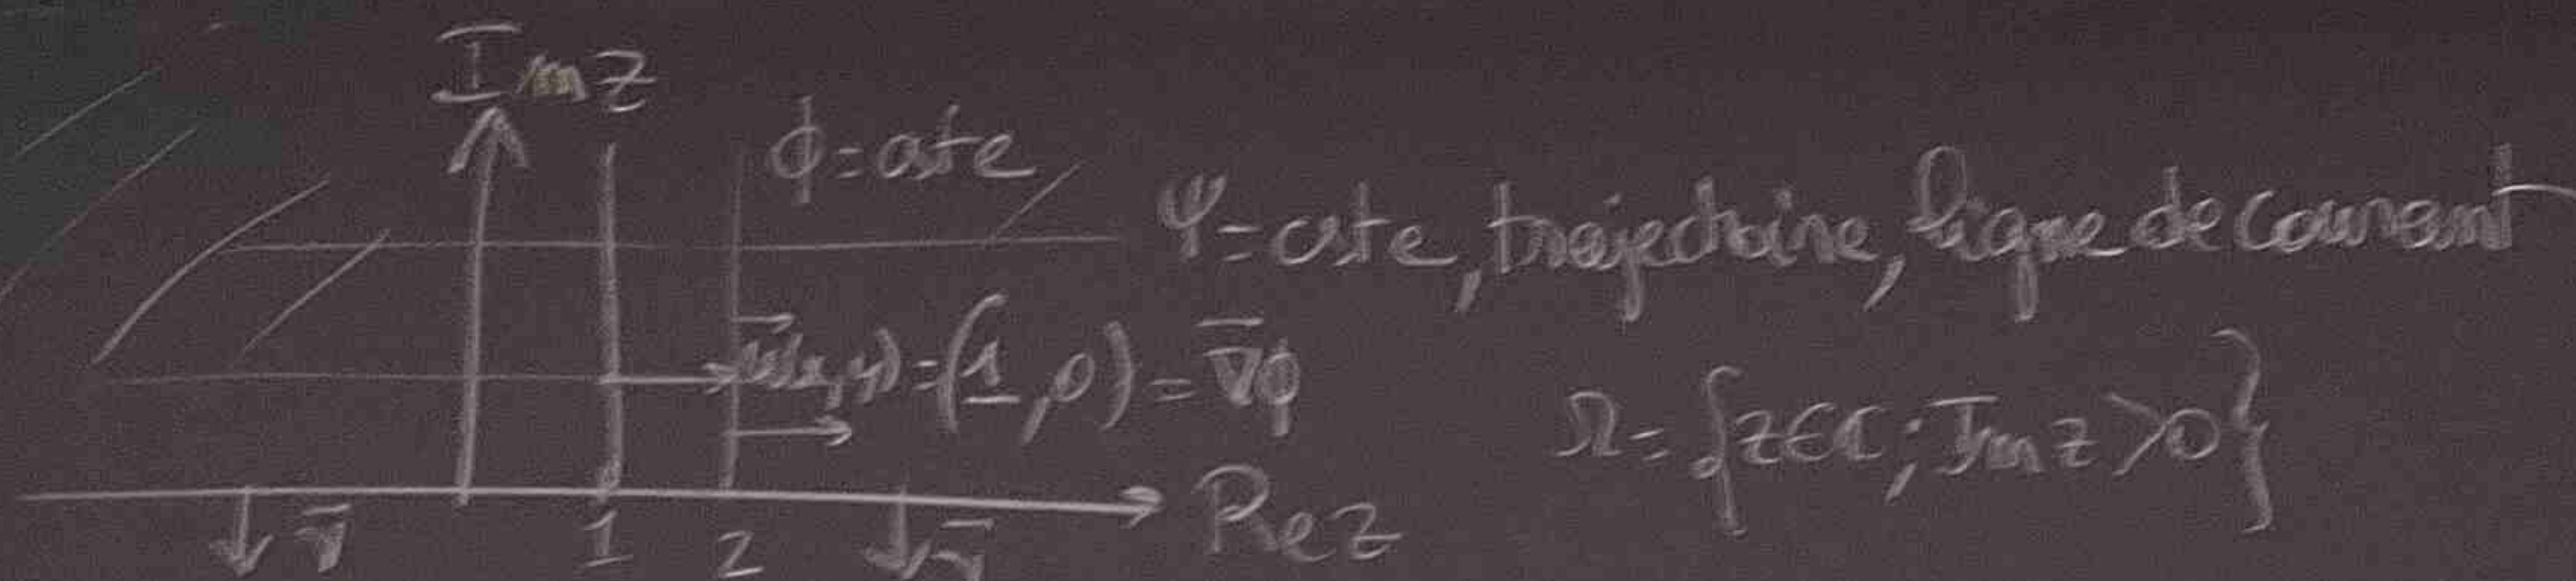 Im z
ϕ = cste
Ψ = cste, trajectoire, ligne de courant
u(x,y) = (1, 0) = ∇ϕ
Ω = {z ∈ ℂ; Im z > 0}
1 2 Re z